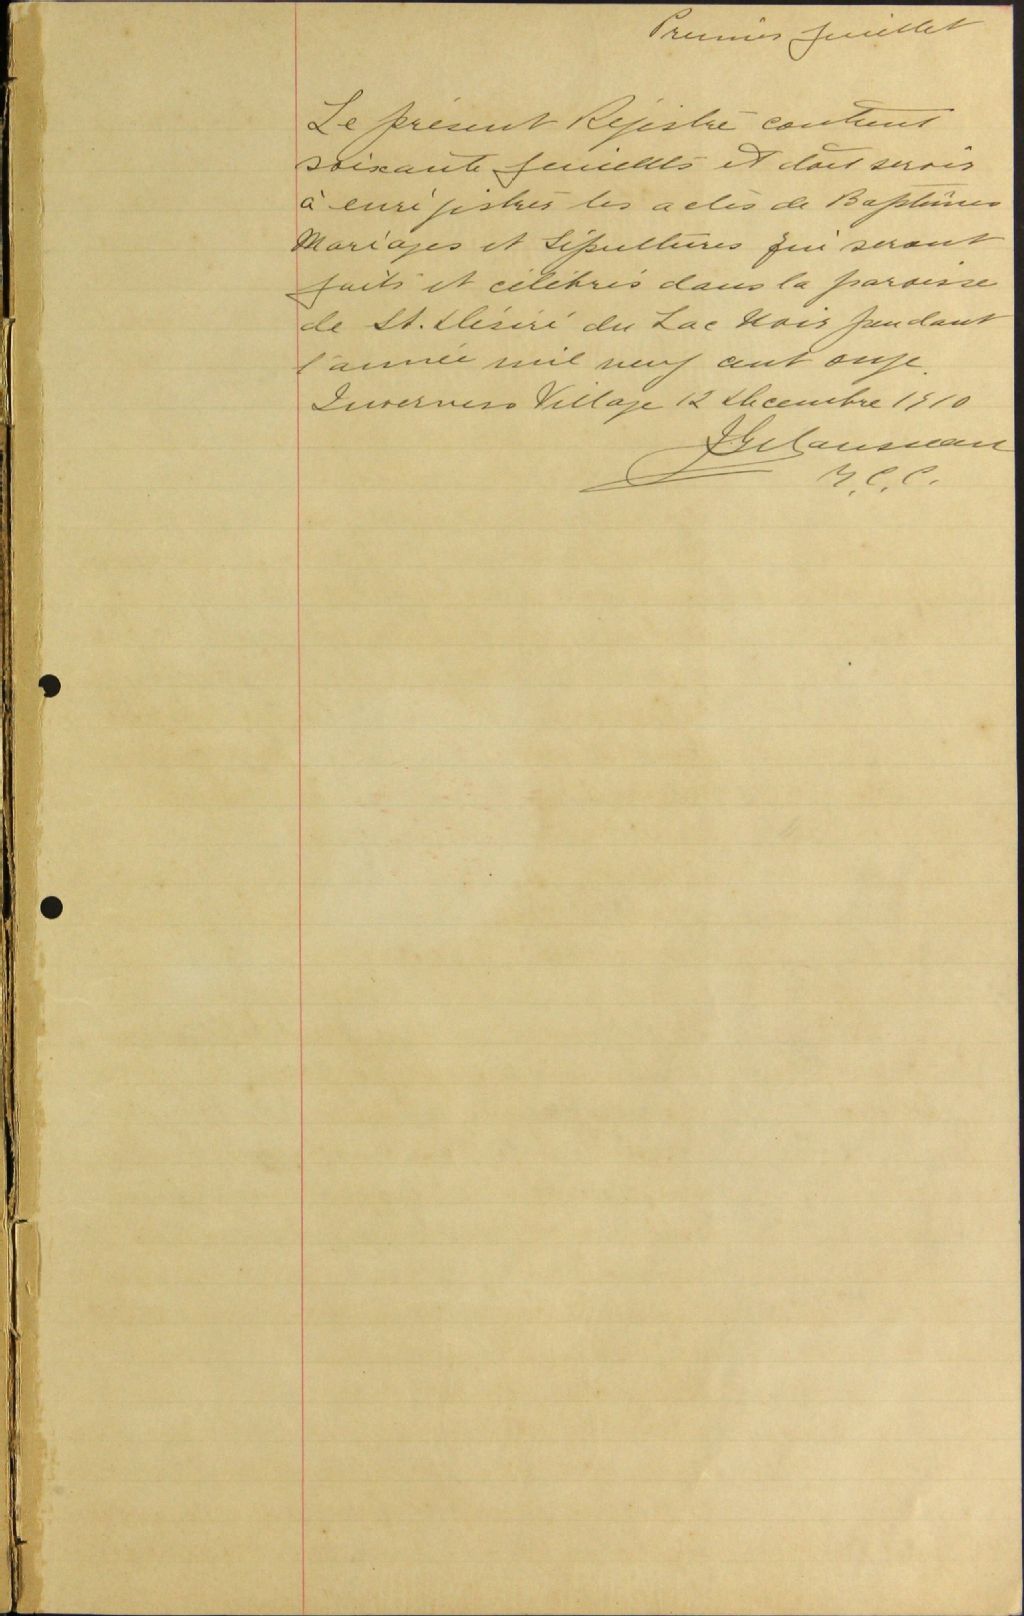 Premier feuillet
Le présent Régistre contient
soixante feuillets et doit servir
à enrégistrer les actes de Baptêmes
Mariages et Sépultures qui seront
faits et célébrés dans la paroisse
de St. Désiré du Lac Noir pendant
l'année mil neuf cent onze.
Inverness Village 12 Décembre 1910
P.C.C.